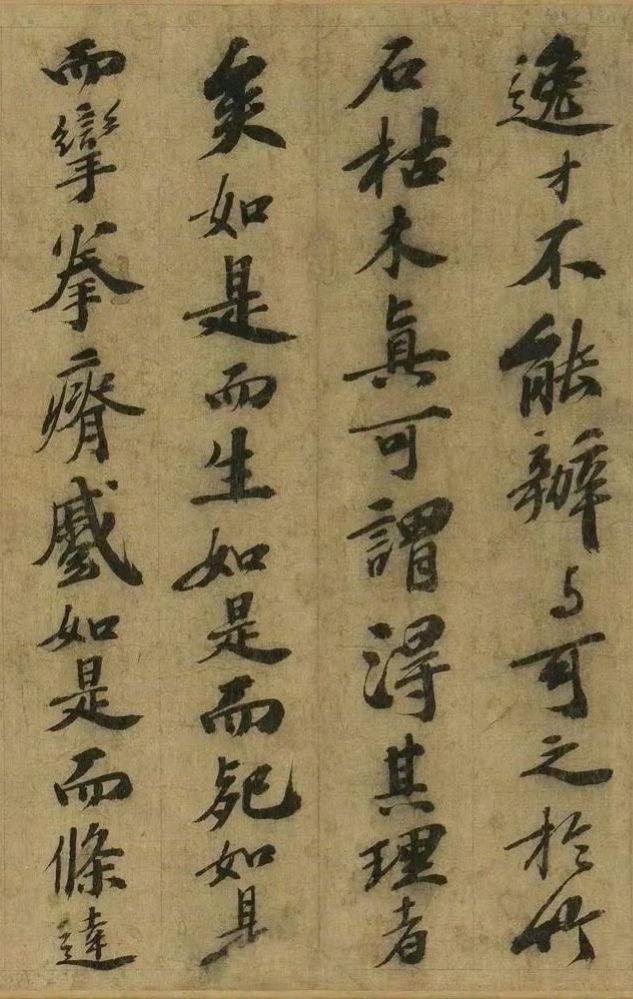 逸才不能辦与可之於竹
石枯木真可謂得其理者
矣如是而生如是而死如是
而攣拳瘠蹙如是而條達